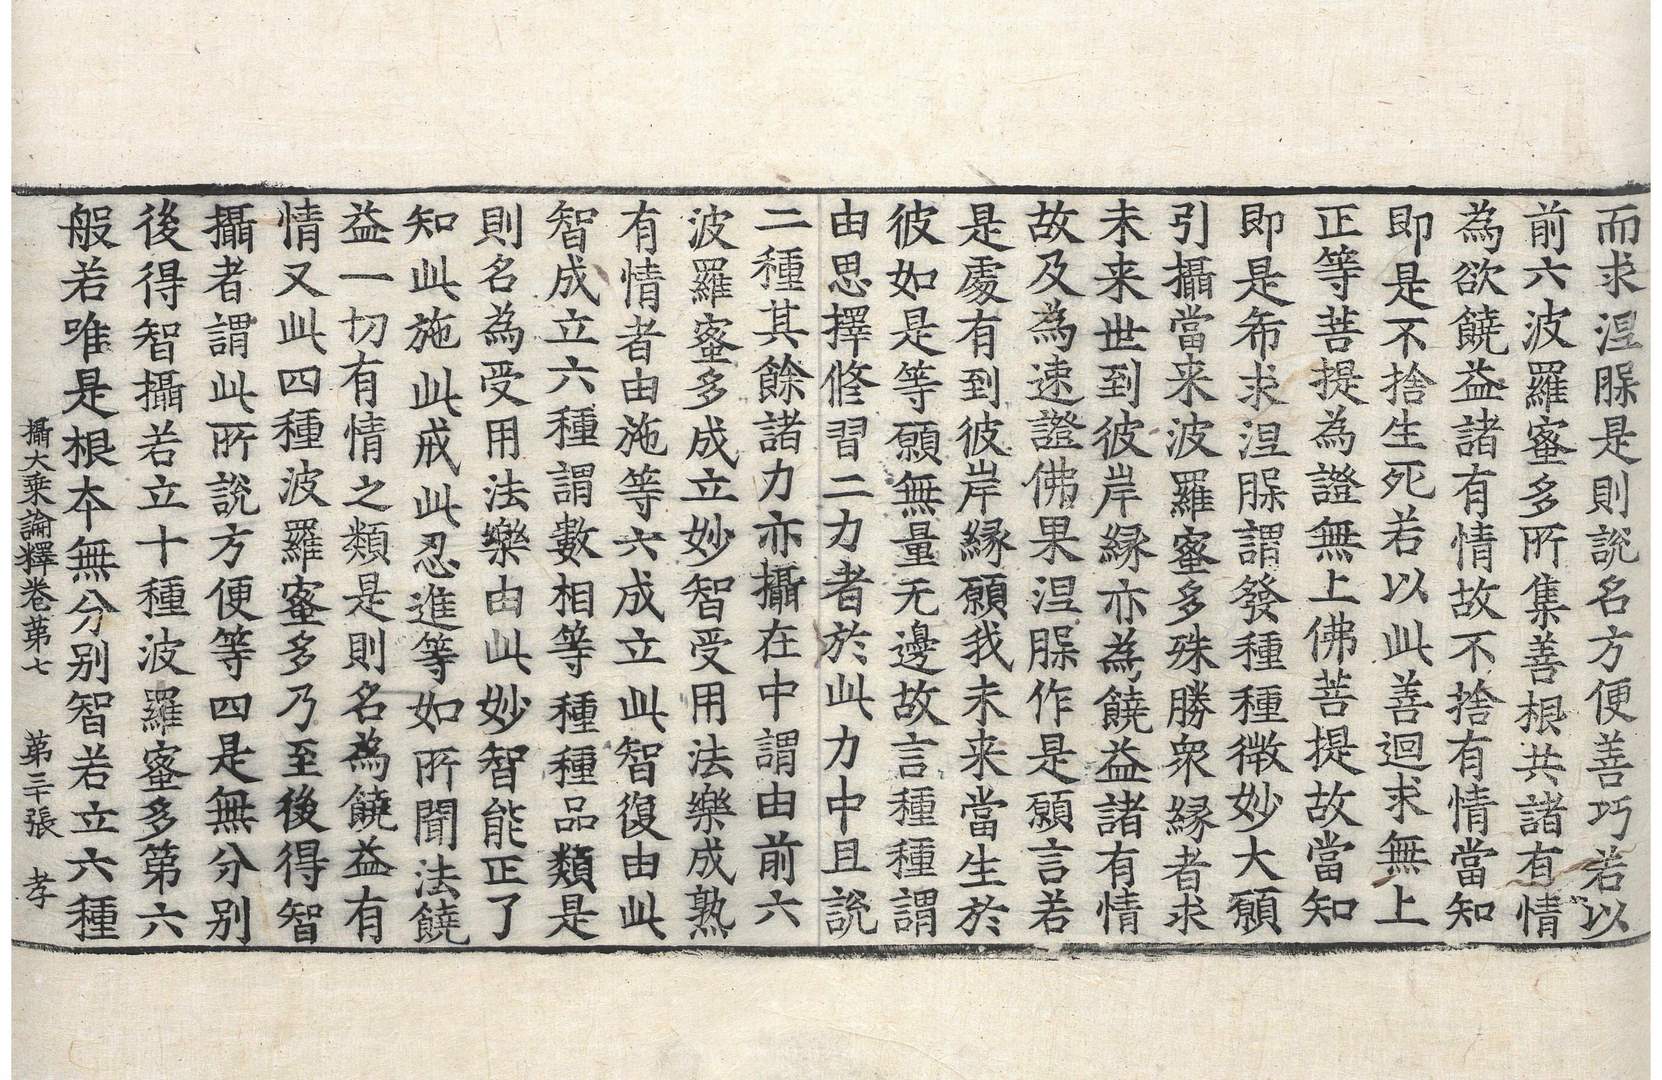 而求涅槃是則說名方便善巧若以
前六波羅蜜多所集善根共諸有情
為欲饒益諸有情故不捨有情當知
即是不捨生死若以此善迴求無上
正等菩提為證無上佛菩提故當知
即是希求涅槃謂發種種微妙大願
引攝當来波羅蜜多殊勝衆縁者求
未来世到彼岸縁亦為饒益諸有情
故及為速證佛果涅槃作是願言若
是處有到彼岸縁願我未来當生於
彼如是等願無量无邊故言種種謂
由思擇修習二力者於此力中且說
二種其餘諸力亦攝在中謂由前六
波羅蜜多成立妙智受用法樂成熟
有情者由施等六成立此智復由此
智成立六種謂數相等種種品類是
則名為受用法樂由此妙智能正了
知此施此戒此忍進等如所聞法饒
益一切有情之類是則名為饒益有
情又此四種波羅蜜多乃至後得智
攝者謂此所說方便等四是無分别
後得智攝若立十種波羅蜜多第六
般若唯是根本無分别智若立六種
攝大乗論釋卷苐七 苐三十張 孝